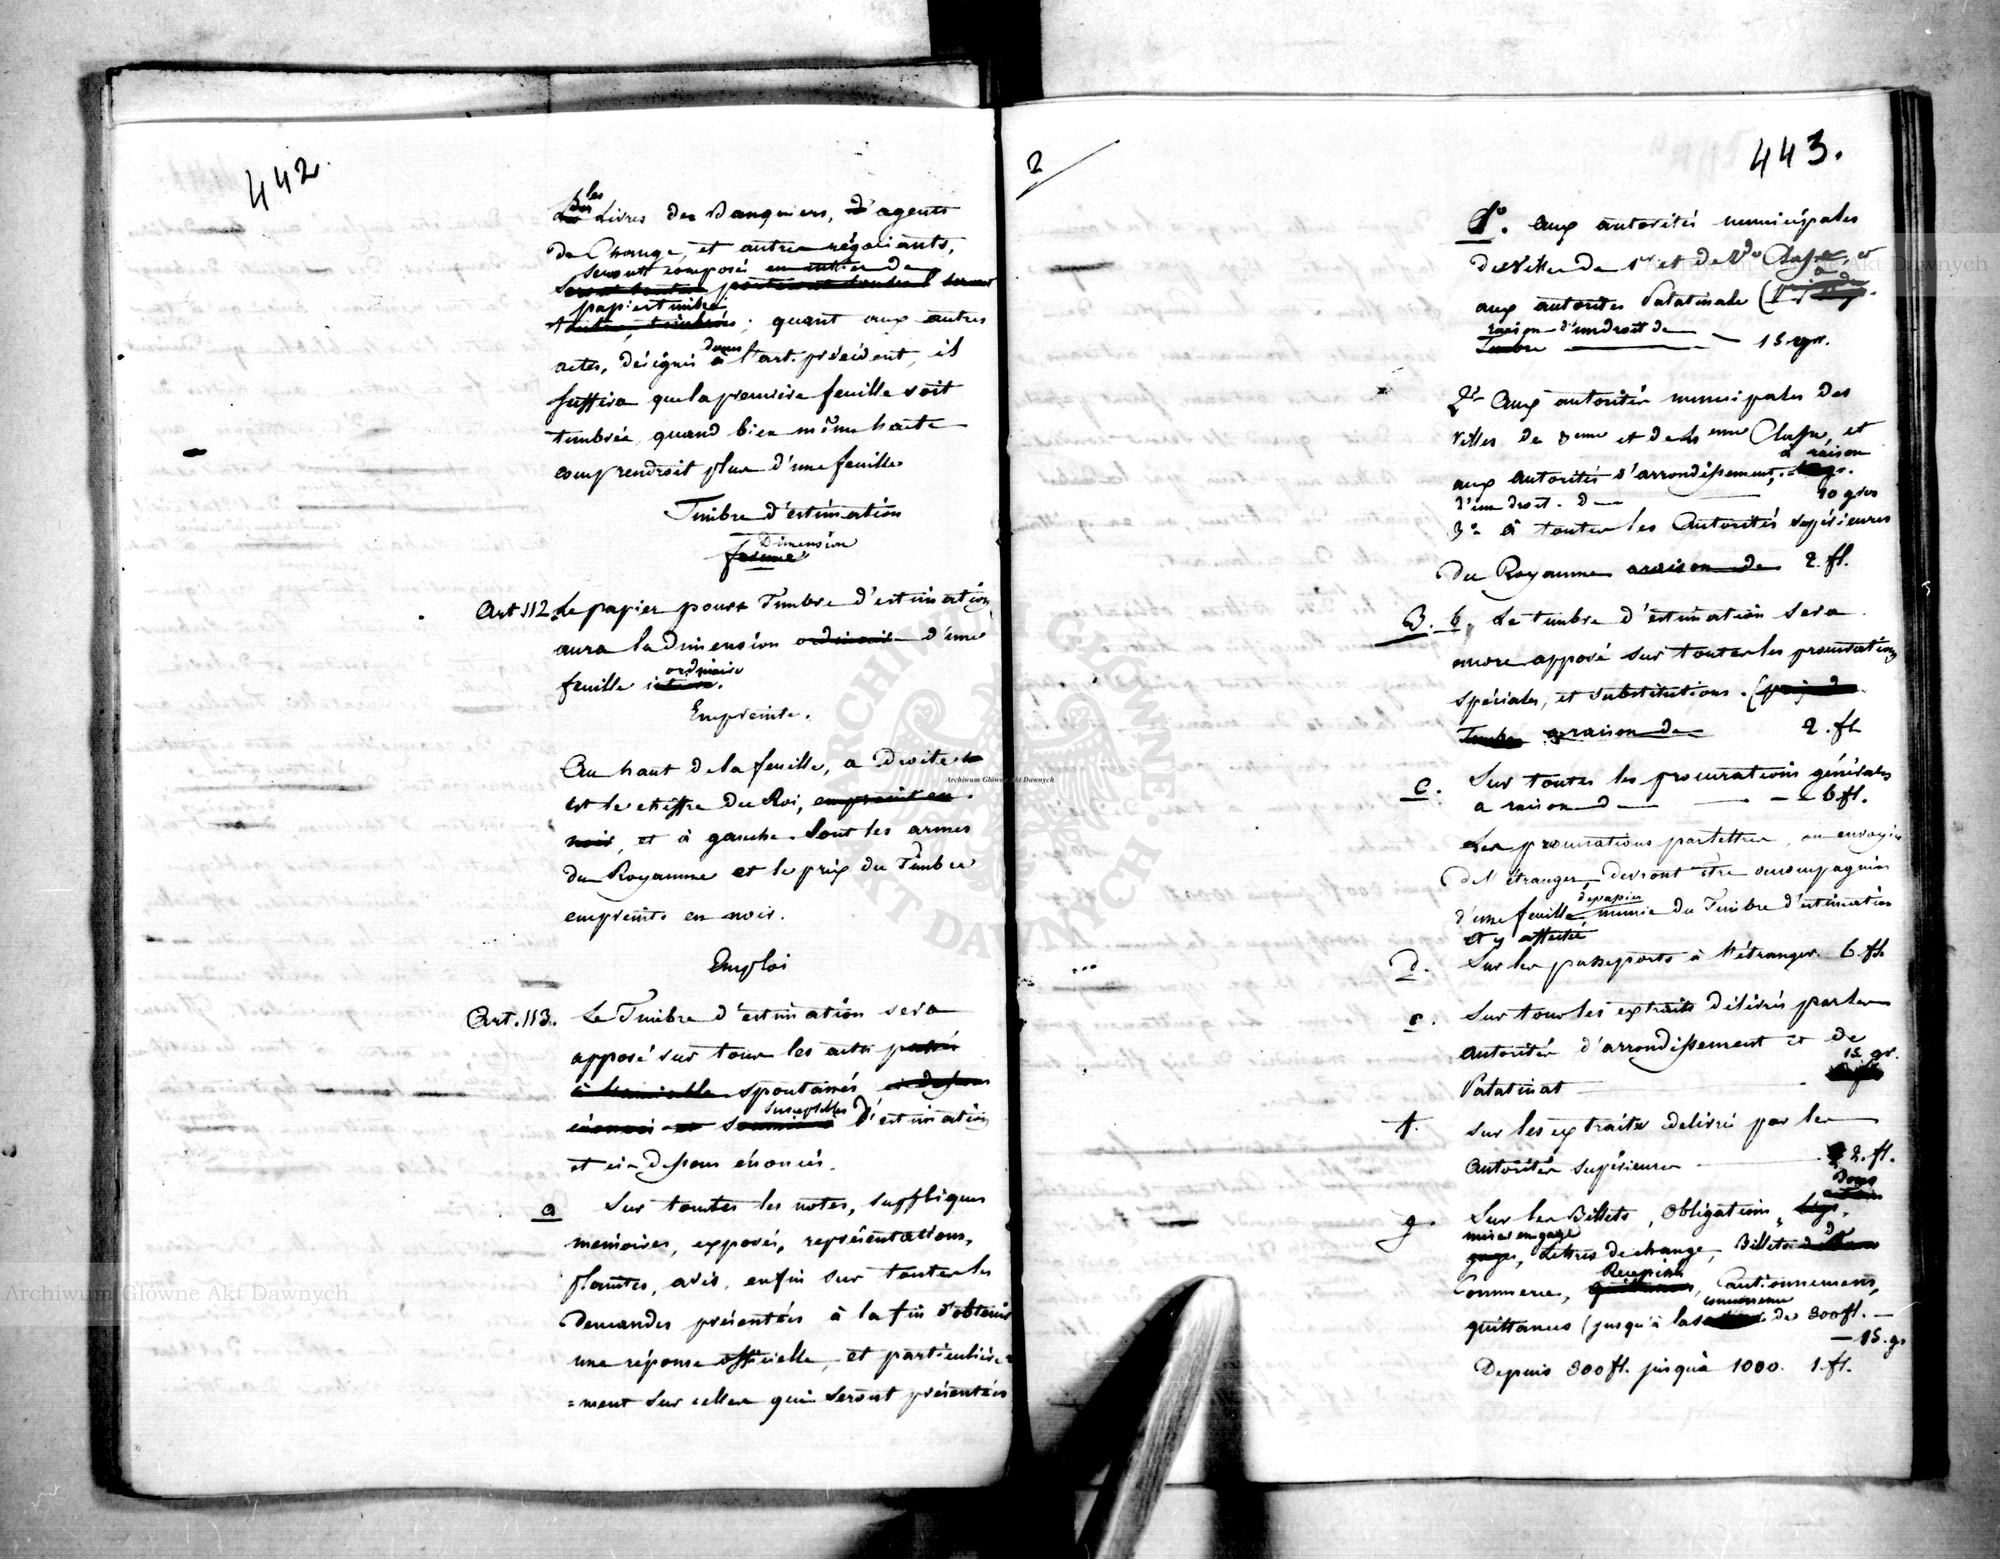 442.
les
Livres des Banquiers, d'agents
de Change, et autres négociants,
seront composés en entier de
papier timbré
; quant aux autres
actes, désignés dans l'art. précédent, il
suffira que la première feuille soit
timbrée, quand bien même l'acte
comprendroit plus d'une feuille
Timbre d'estimation
Dimension
forme
Art. 112. Le papier pour Timbre d'estimation
aura la dimension ordinaire d'une
feuille ordinaire.
Empreinte.
Au haut de la feuille, a Droite
est le chiffre du Roi, empreint en
noir, et à gauche sont les armes
du Royaume et le prix du Timbre
empreints en noir.
Emploi
Art. 113. Le Timbre d'estimation sera
apposé sur tous les actes
spontanés
susceptibles d'estimation
et ci-dessous énoncés.
a Sur toutes les notes, suppliques
memoires, exposés, représentations,
plaintes, avis, enfin sur toutes les
Demandes présentées à la fin d'obtenir
une réponse officielle, et particulière=
=ment sur celles qui seront présentées
2
443.
1°. Aux autorités municipales
des Villes de 1er et de 2de Classe, et
aux autorités Palatinale à
raison d'un droit de
Timbre 15 gr.
2° Aux autorités municipales des
Villes de 3eme et de 4eme Classe, et
aux autorités d'arrondissement, à raison
d'un droit de 10 gros
3° à toutes les Autorités supérieures
du Royaume a raison de 2. fl.
B. b, Le timbre d'estimation sera
encore apposé sur toutes les procurations
spéciales, et substitutions.
Timbre a raison de 2. fl
c. Sur toutes les procurations générales
a raison d 6 fl.
Les procurations par lettres, ou envoyées
de l'étranger devront être accompagnées
d'une feuille de papier munie du Timbre d'estimation
et y affecté
d. Sur les passeports à l'étranger. 6. fl.
e. Sur tous les extraits délivrés par les
autorités d'arrondissement et de
Palatinat 15 gr.
f. Sur les extraits delivrés par les
Autorités supérieures 2. fl.
g. Sur les Billets, Obligations,
mises en gage
gages, Lettres de change, Billets de
Commerce, Recepissés, Cautionnemens,
quittances (jusqu'à la concurrence de 300 fl.
15. gr
Depuis 300 fl. jusqu'à 1000. 1. fl.
Archiwum Główne Akt Dawnych
Archiwum Główne Akt Dawnych
Archiwum Główne Akt Dawnych
ARCHIWUM GŁÓWNE AKT DAWNYCH